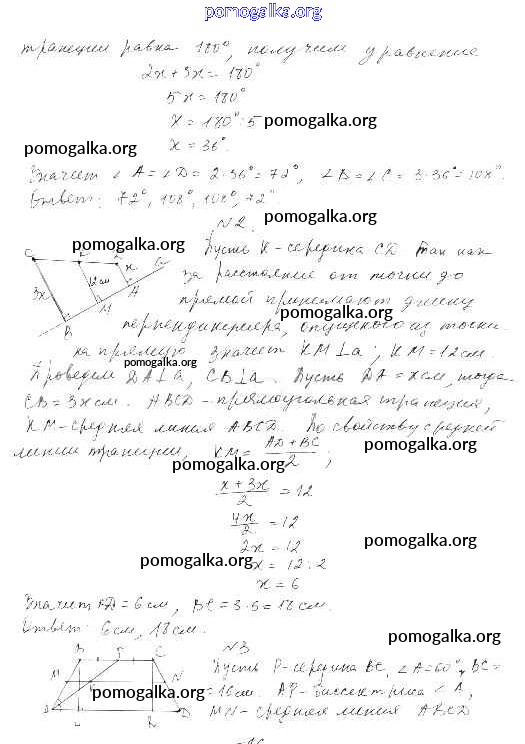 pomogalka.org
трапеции равна 180°, получим уравнение
2x+3x=180°
5x=180°
x=180°:5 pomogalka.org
pomogalka.org x=36°.
Значит ∠A=∠D=2·36°=72°, ∠B=∠C=3·36°=108°.
Ответ: 72°, 108°, 108°, 72°.
pomogalka.org
N2.
pomogalka.org Пусть K-середина CD Так как
за расстояние от точки до
прямой принимают длину
pomogalka.org
перпендикуляра, опущенного из точки
C K D x a 3x 12 см B M A
на прямую значит KM⊥a, KM=12см.
pomogalka.org
Проведем DA⊥a, CB⊥a. Пусть DA=xсм, тогда
CB=3xсм. ABCD-прямоугольная трапеция,
KM-средняя линия ABCD. По свойству средней
pomogalka.org
линии трапеции, KM=(AD+BC)/2;
pomogalka.org
(x+3x)/2=12
4x/2=12
2x=12 pomogalka.org
pomogalka.org x=12:2
x=6
Значит AD=6см, BC=3·6=18см.
Ответ: 6см, 18см.
pomogalka.org
N3
B P C Пусть P-середина BC, ∠A=60°, BC=
M N pomogalka.org =16см. AP-биссектриса ∠A,
D MN-средняя линия ABCD